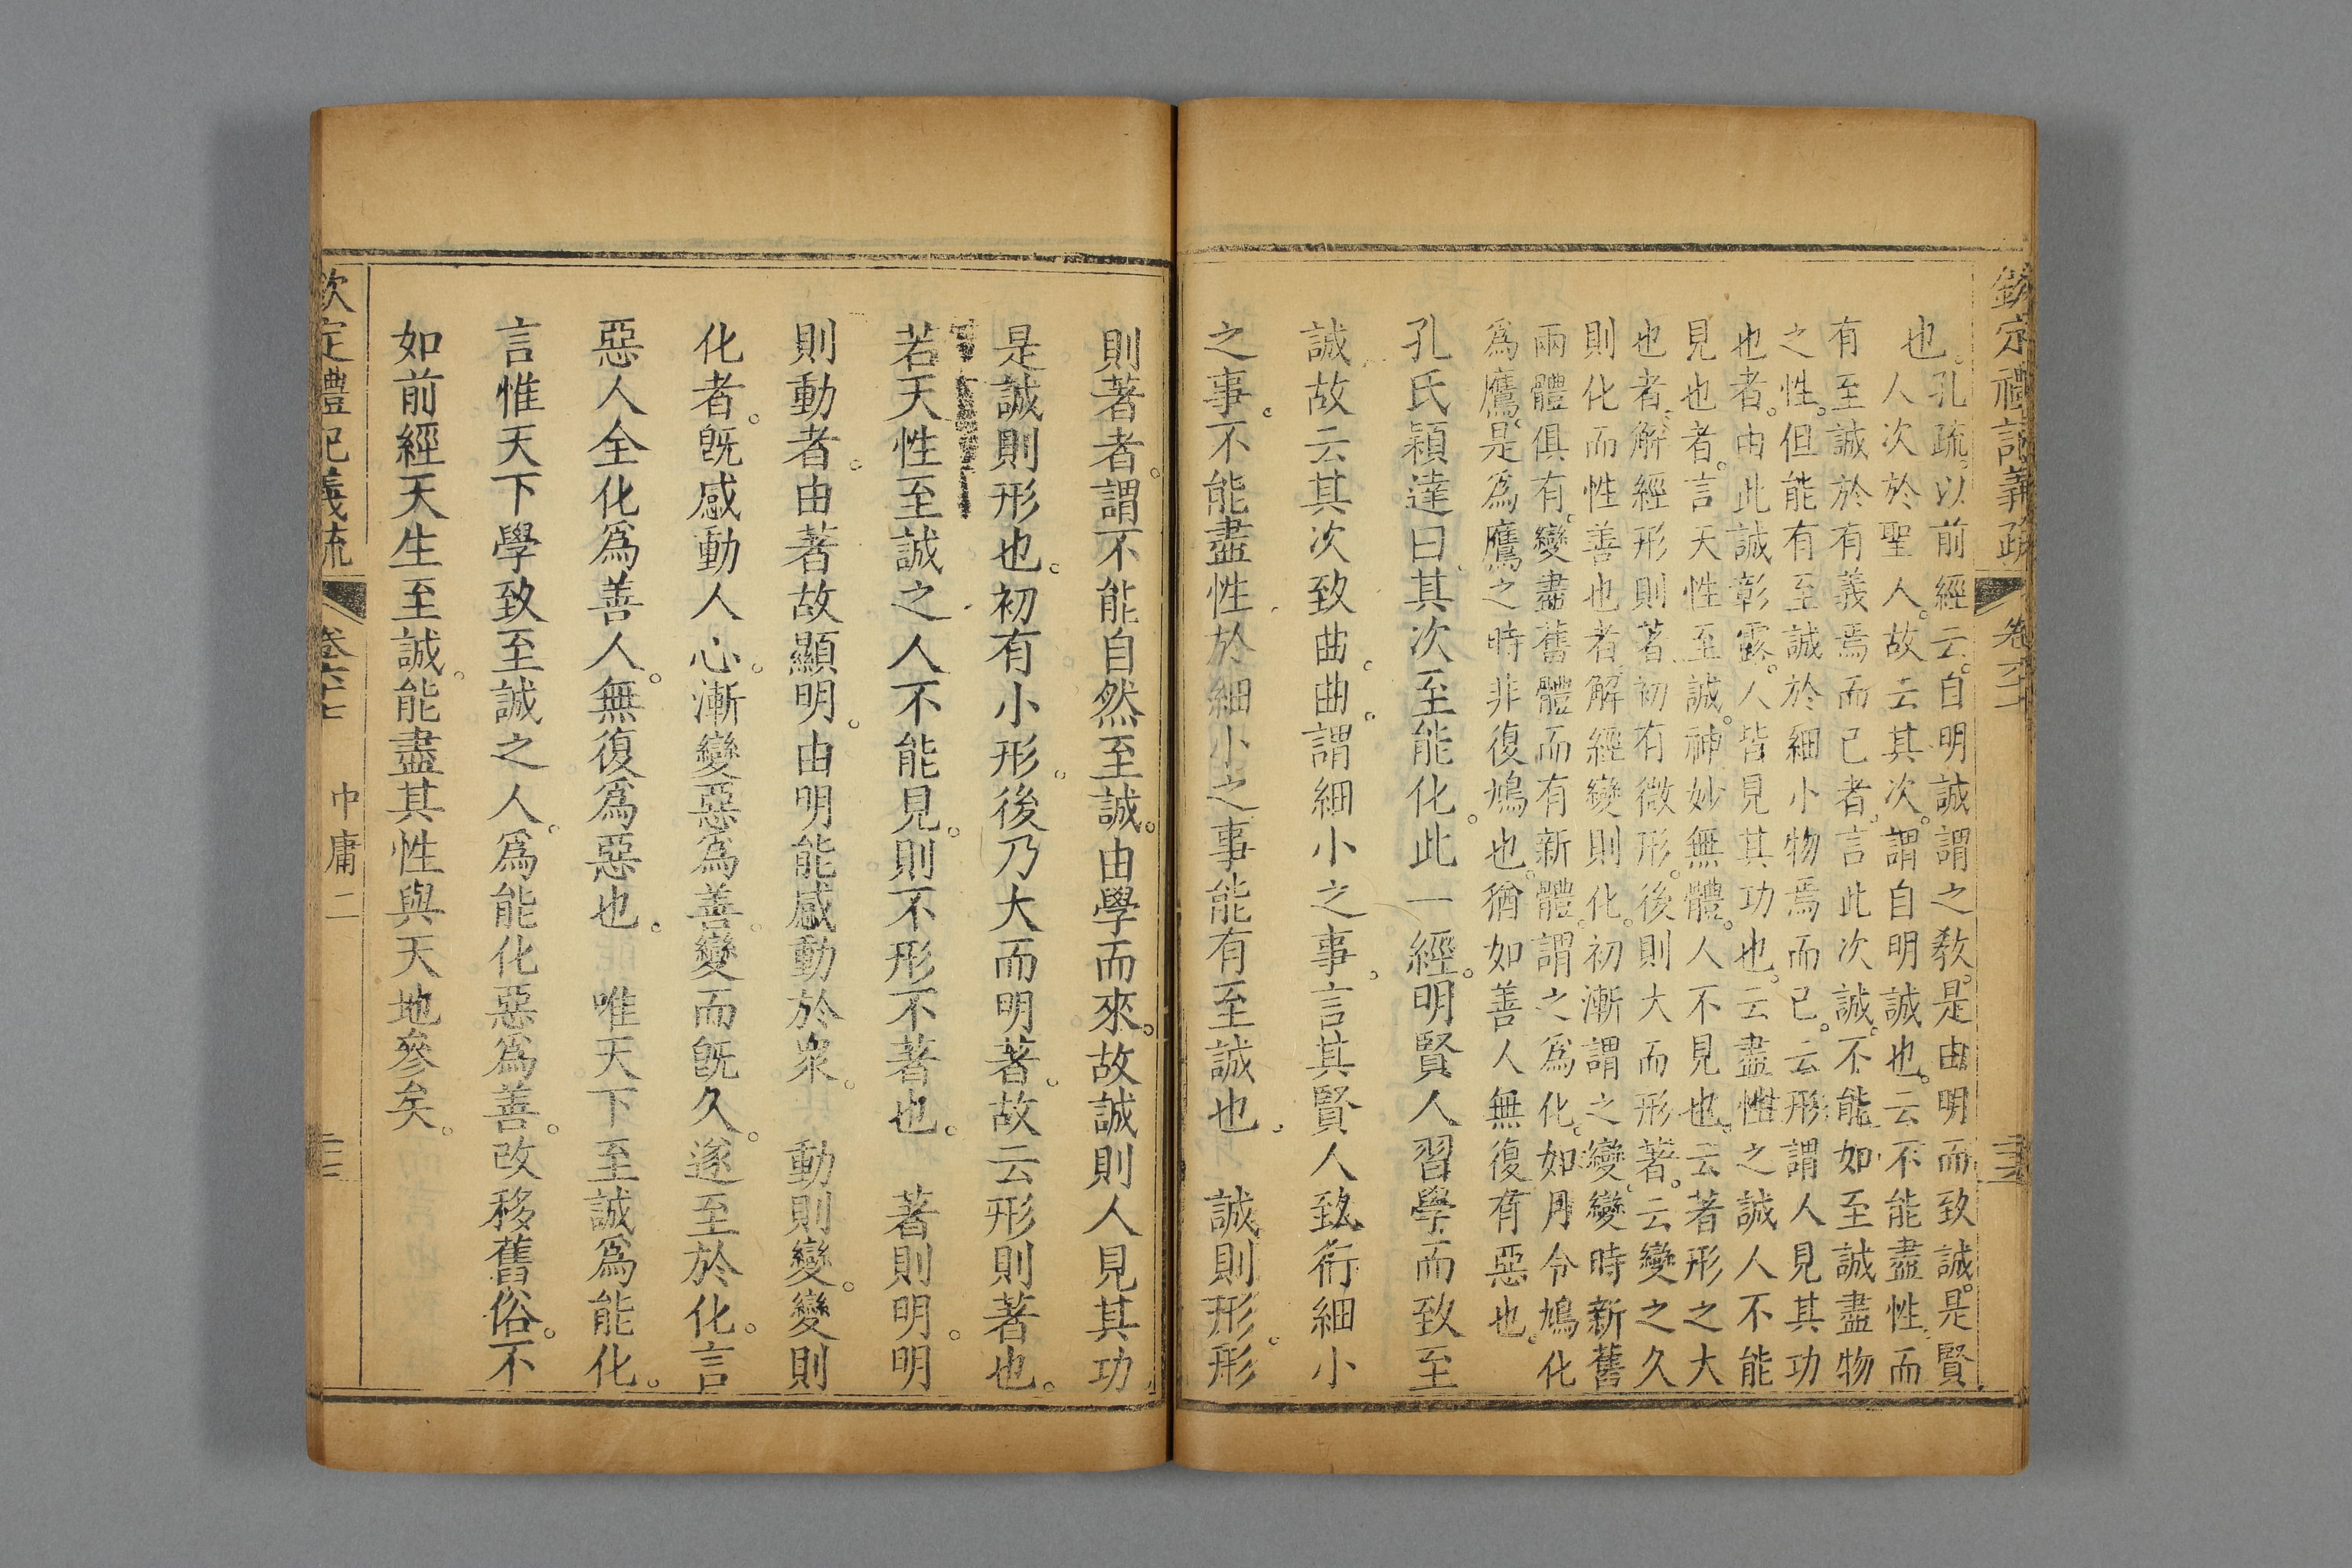 欽定禮記義疏 卷六十七
也。孔疏。以前經云。自明誠謂之教。是由明而致誠。是賢
人次於聖人。故云其次。謂自明誠也。云不能盡性。而
有至誠於有義焉而已者。言此次誠。不能如至誠盡物
之性。但能有至誠於細小物焉而已。云形謂人見其功
也者。由此誠彰露。人皆見其功也。云盡性之誠人不能
見也者。言天性至誠。神妙無體。人不見也。云著形之大
也者。解經形則著。初有微形。後則大而形著。云變之久
則化而性善也者。解經變則化。初漸謂之變。變時新舊
兩體俱有。變盡舊體而有新體。謂之爲化。如月令鳩化
爲鷹。是爲鷹之時非復鳩也。猶如善人無復有惡也。
孔氏穎達曰。其次至能化。此一經。明賢人習學而致至
誠故云其次致曲。曲。謂細小之事。言其賢人致術細小
之事。不能盡性於細小之事能有至誠也。 誠則形。形
則著者。謂不能自然至誠。由學而來。故誠則人見其功
是誠則形也。初有小形。後乃大而明著。故云形則著也。
若天性至誠之人不能見。則不形不著也。 著則明。明
則動者。由著故顯明。由明能感動於衆。 動則變。變則
化者。旣感動人心。漸變惡爲善。變而旣久。遂至於化。言
惡人全化爲善人。無復爲惡也。 唯天下至誠爲能化。
言惟天下學致至誠之人。爲能化惡爲善。改移舊俗。不
如前經天生至誠。能盡其性與天地參矣。
欽定禮記義疏 卷六十七 中庸二